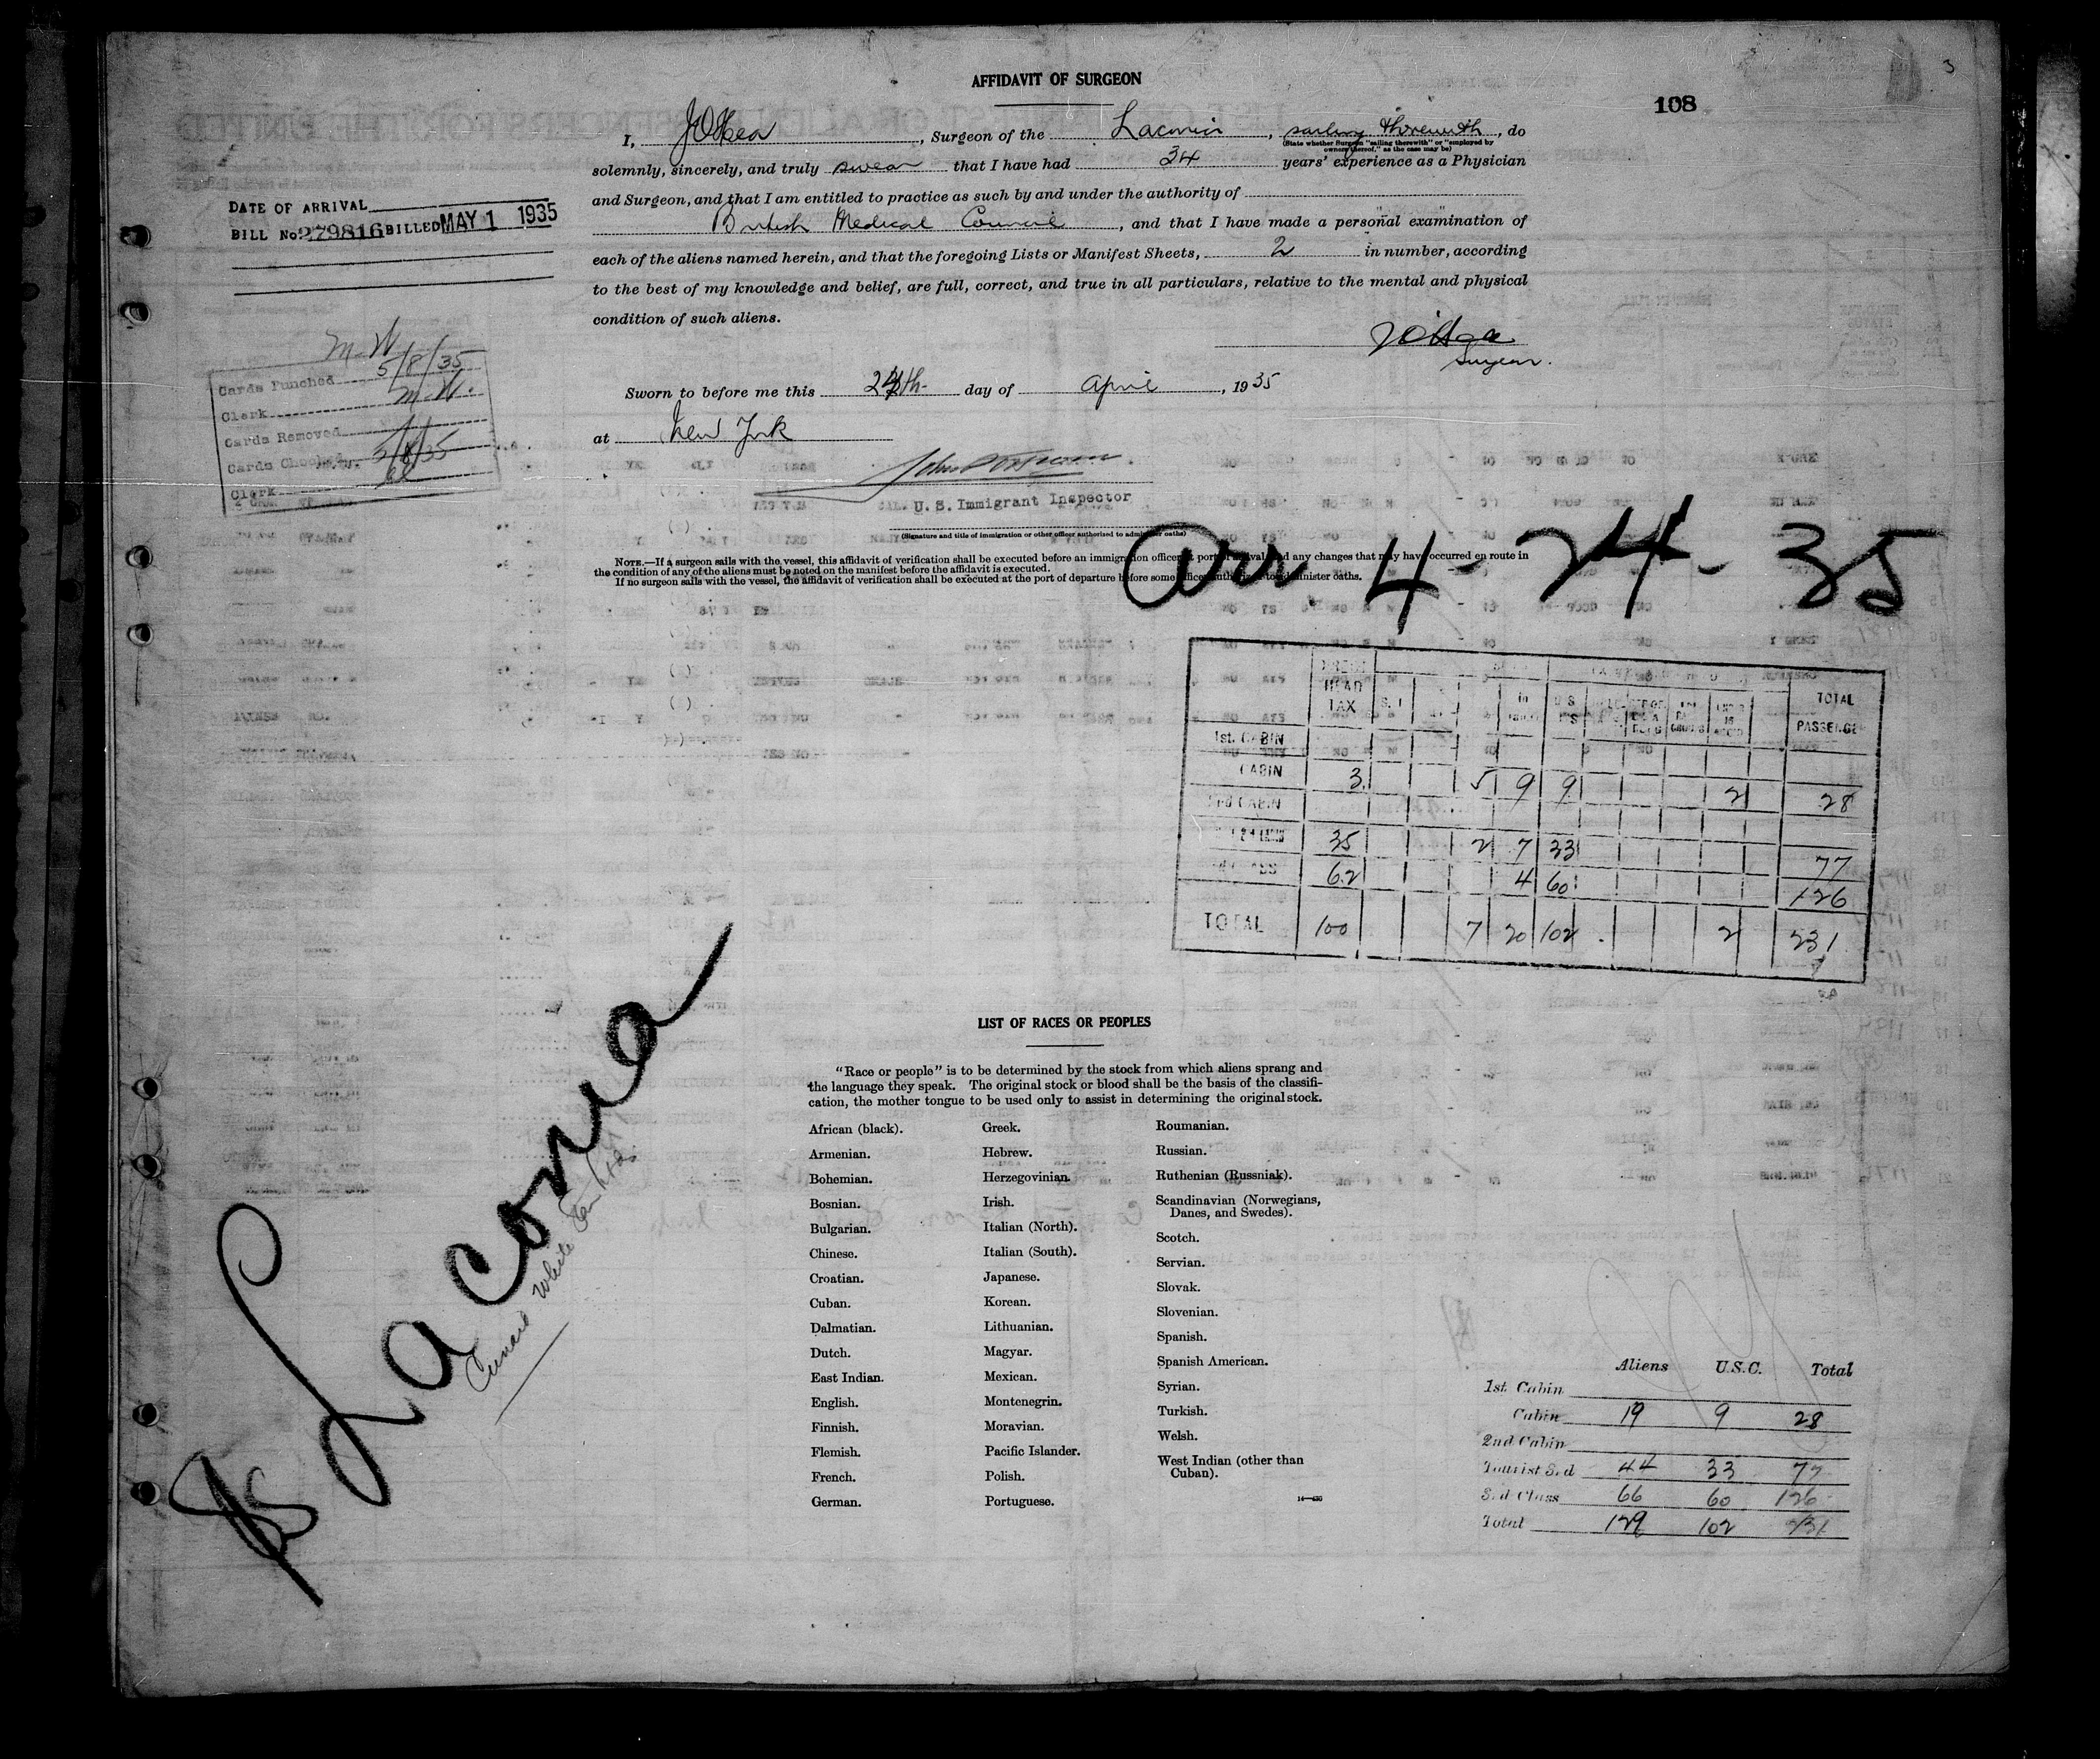 3
AFFIDAVIT OF SURGEON
108
I, J O'Hea, Surgeon of the Laconia, sailing therewith, do
(State whether Surgeon "sailing therewith" or "employed by
owners thereof," as the case may be)
solemnly, sincerely, and truly swear that I have had 34 years' experience as a Physician
and Surgeon, and that I am entitled to practice as such by and under the authority of
British Medical Council, and that I have made a personal examination of
each of the aliens named herein, and that the foregoing Lists or Manifest Sheets, 2 in number, according
to the best of my knowledge and belief, are full, correct, and true in all particulars, relative to the mental and physical
condition of such aliens.
J O'Hea
Surgeon.
Sworn to before me this 24th day of April, 1935
at New York
U. S. Immigrant Inspector
(Signature and title of immigration or other officer authorized to administer oaths)
NOTE.—If a surgeon sails with the vessel, this affidavit of verification shall be executed before an immigration officer at port of arrival and any changes that may have occurred en route in
the condition of any of the aliens must be noted on the manifest before the affidavit is executed.
If no surgeon sails with the vessel, the affidavit of verification shall be executed at the port of departure before some officer authorized to administer oaths.
DATE OF ARRIVAL
BILL No 279816 BILLED MAY 1 1935
M.W.
Cards Punched 5/8/35
Clerk M.W.
Cards Removed
Cards Checked 5/8/35
Clerk
Arr. 4-24-35
HEAD TAX U S TOTAL PASSENGE
1st. CABIN
CABIN 3 5 9 9 2 28
2nd CABIN
35 2 7 33 77
62 4 60 126
TOTAL 100 7 20 102 2 231
SS Laconia
Cunard White Star
LIST OF RACES OR PEOPLES
"Race or people" is to be determined by the stock from which aliens sprang and
the language they speak. The original stock or blood shall be the basis of the classifi-
cation, the mother tongue to be used only to assist in determining the original stock.
African (black).
Armenian.
Bohemian.
Bosnian.
Bulgarian.
Chinese.
Croatian.
Cuban.
Dalmatian.
Dutch.
East Indian.
English.
Finnish.
Flemish.
French.
German.
Greek.
Hebrew.
Herzegovinian.
Irish.
Italian (North).
Italian (South).
Japanese.
Korean.
Lithuanian.
Magyar.
Mexican.
Montenegrin.
Moravian.
Pacific Islander.
Polish.
Portuguese.
Roumanian.
Russian.
Ruthenian (Russniak).
Scandinavian (Norwegians,
Danes, and Swedes).
Scotch.
Servian.
Slovak.
Slovenian.
Spanish.
Spanish American.
Syrian.
Turkish.
Welsh.
West Indian (other than
Cuban).
Aliens U.S.C. Total
1st Cabin
Cabin 19 9 28
2nd Cabin
Tourist 3rd 44 33 77
3rd Class 66 60 126
Total 129 102 231